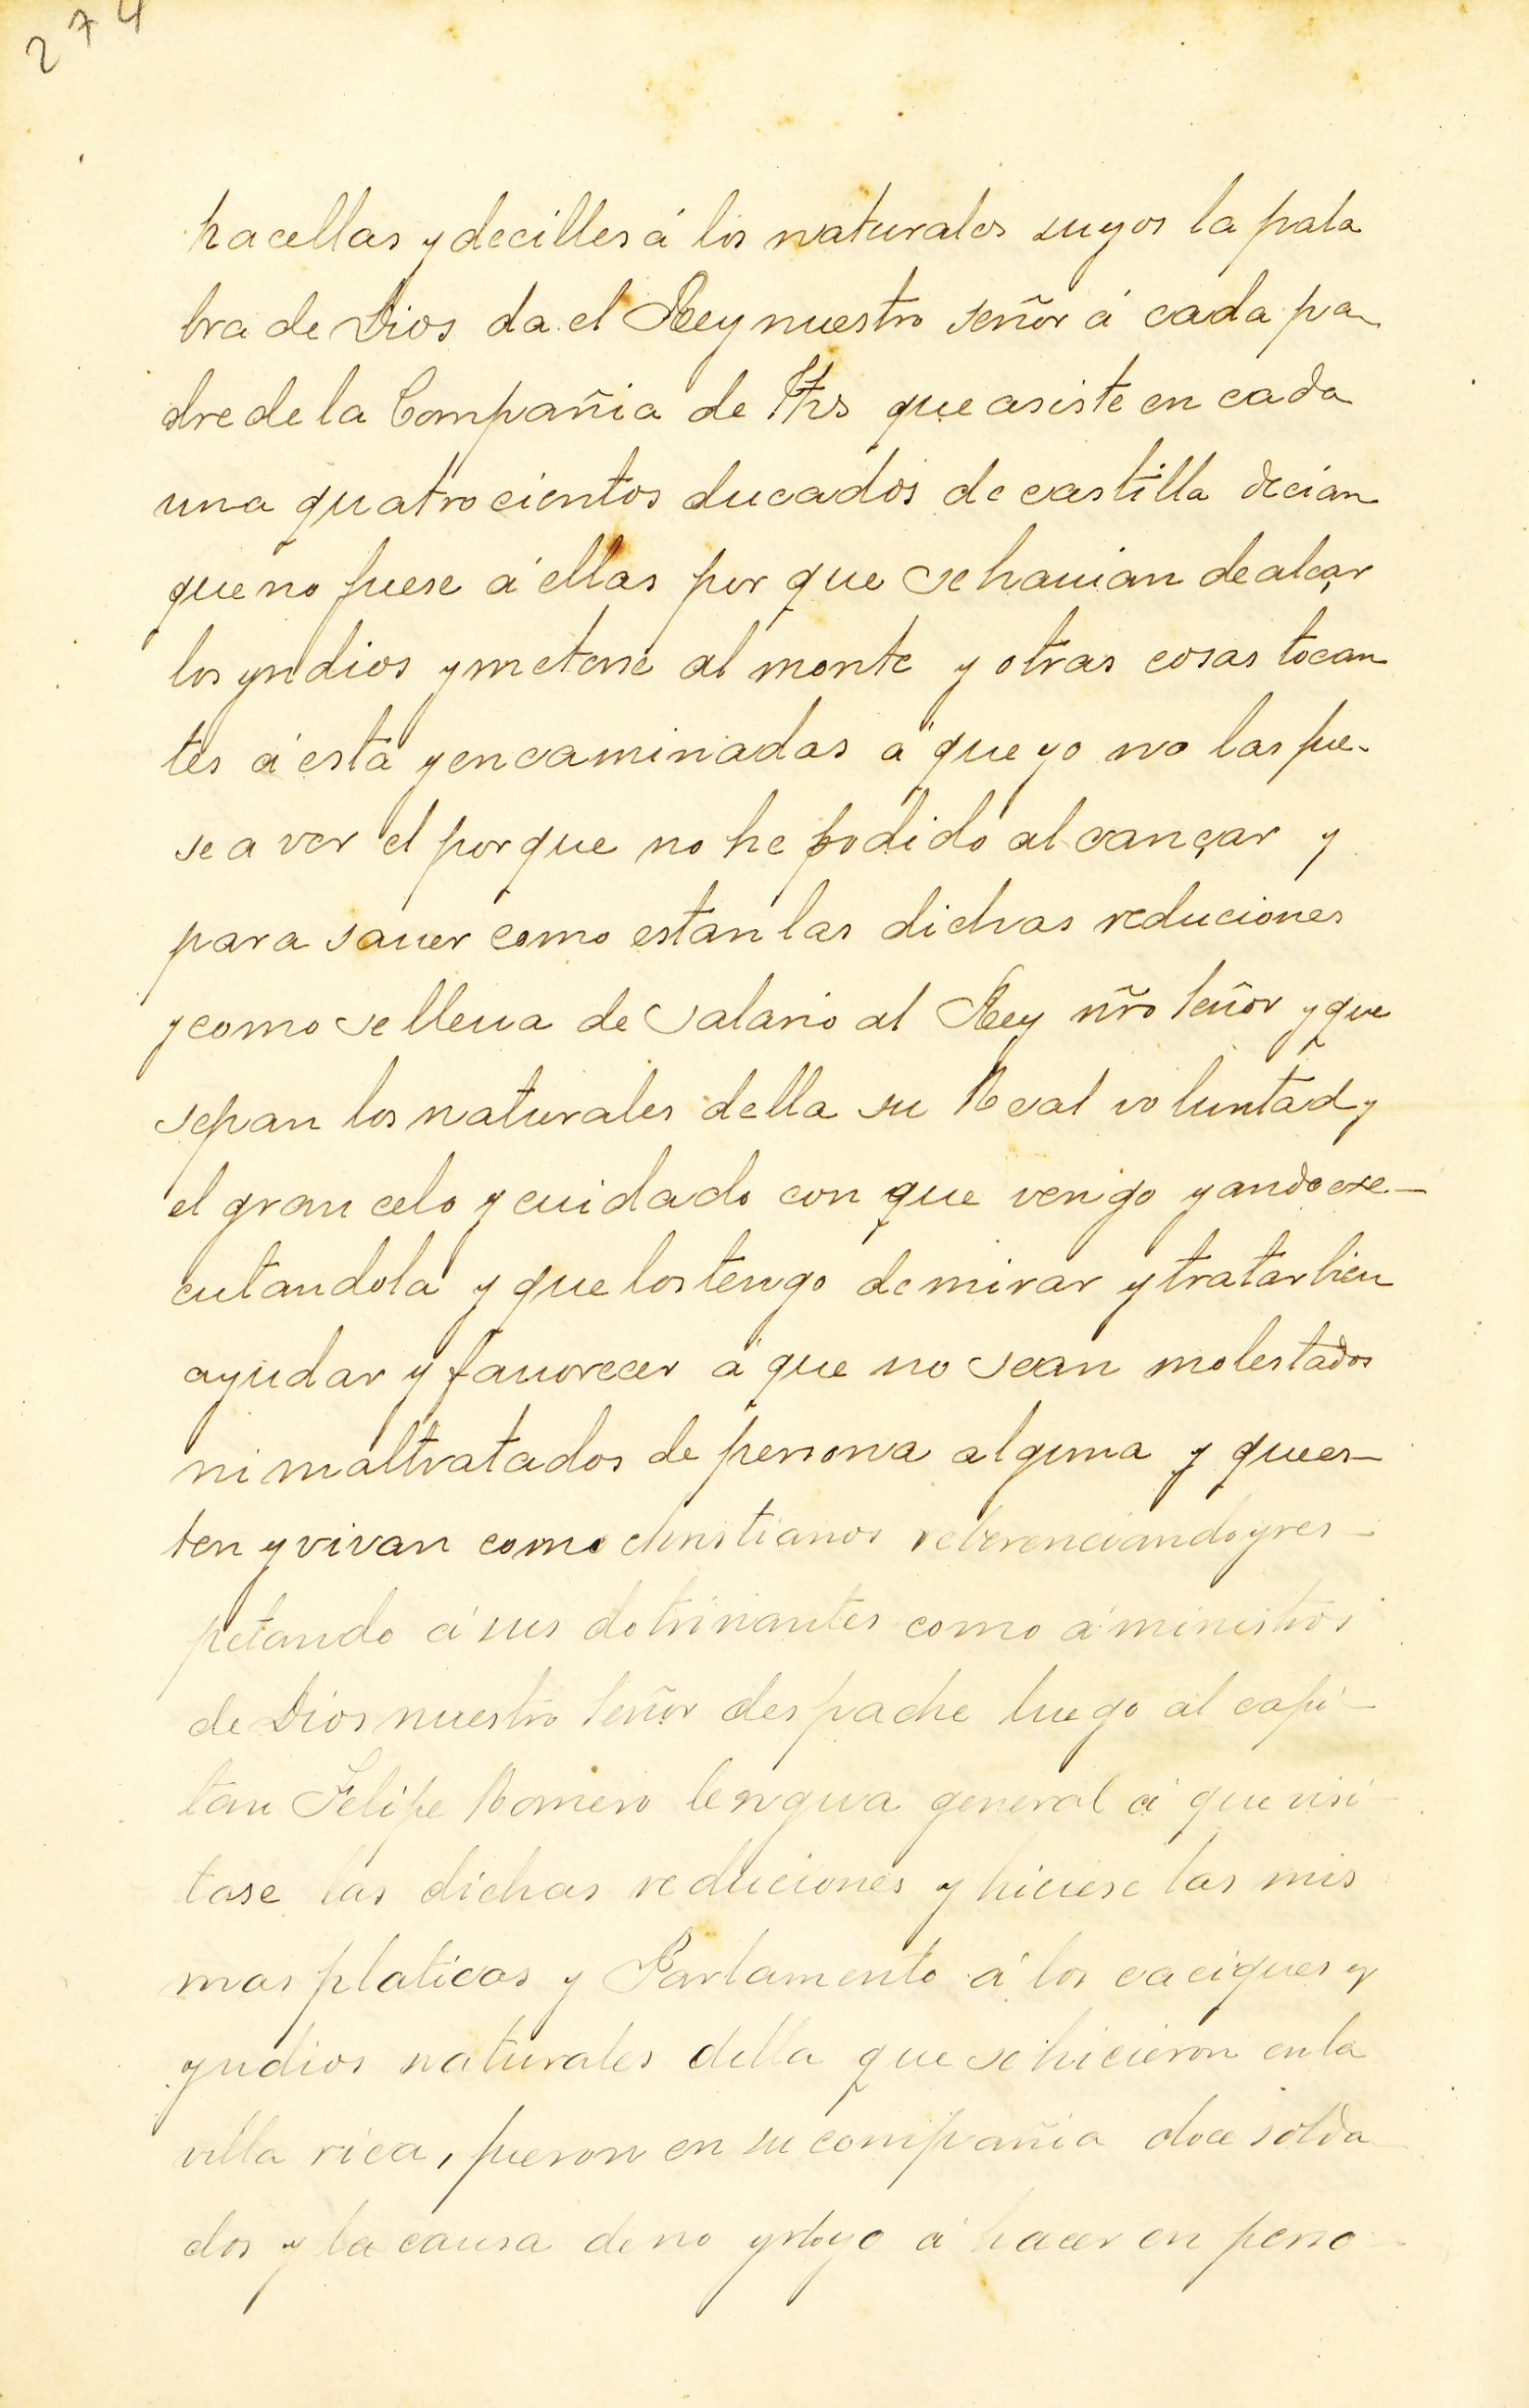 274
hacellas y decilles á los naturales suyos la pala
bra de Dios da el Rey nuestro señor á cada pa
dre de la Compañia de Jhs que asiste en cada
una quatrocientos ducados de castilla decian
que no fuese á ellas por que se hauian de alçar
los yndios y meterse al monte y otras cosas tocan
tes á esta y encaminadas á que yo no las fue-
se a ver el porque no he podido alcançar y
para sauer como estan las dichas reduciones
y como se lleua de salario al Rey nr̃o señor y que
sepan los naturales della su Real voluntad y
el gran celo y cuidado con que vengo y ando exe-
cutandola y que los tengo de mirar y tratar bien
ayudar y fauorecer á que no sean molestados
ni maltratados de persona alguna y que es-
ten y vivan como christianos reberenciando y res-
petando á sus dotrinantes como á ministros
de Dios nuestro señor despache luego al capi-
tan Felipe Romero lengua general á que visi-
tase las dichas reduciones y hiciese las mis
mas platicas y Parlamento á los caciques y
yndios naturales della que se hicieron en la
villa rica, fueron en su compañia doce solda
dos y la causa de no yrloyo á hacer en perso-